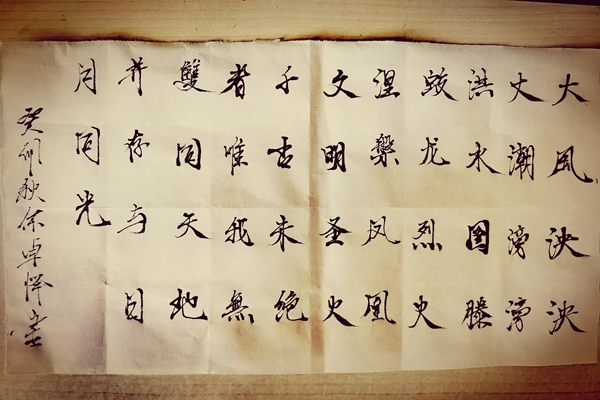 大风泱泱
大潮滂滂
洪水图腾
蛟龙烈火
涅槃凤凰
文明圣火
千古未绝
者唯我無
雙同天地
并存与日
月同光
癸卯秋徐卓